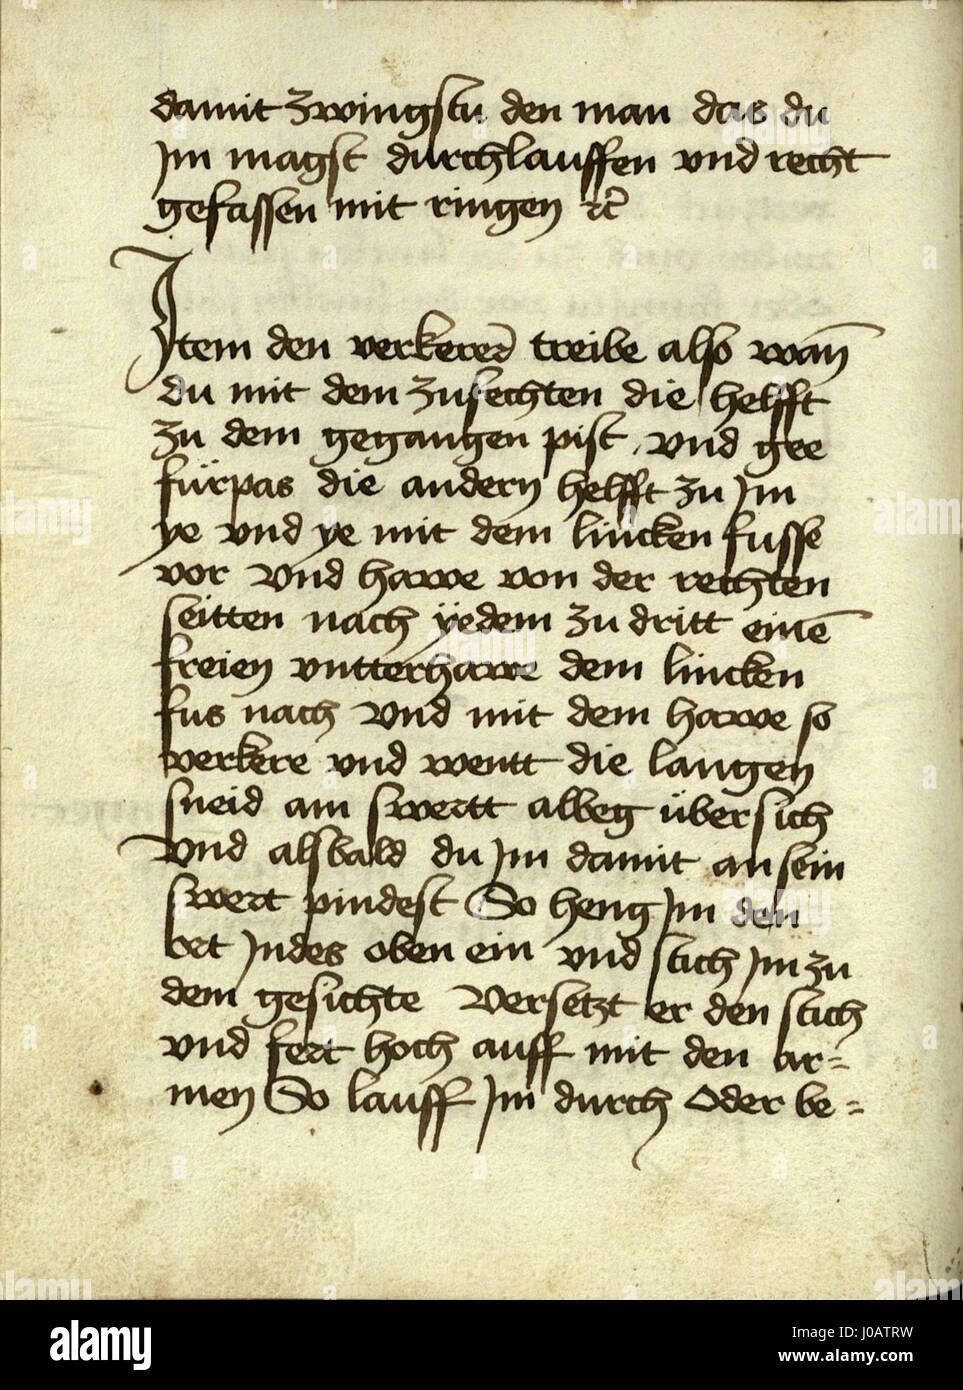 damit zwingstu den man das du
Jm magst durchlauffen vnd recht
gefassen mit ringen etc̃
Jtem den verkerer treibe also wan̄
du mit dem zufechten die helfft
zu dem gegangen pist vnd gee
fürpas die andern helfft zu Jm
ye vnd ye mit dem lincken fusse
vor vnd hawe von der rechten
seitten nach ÿedem zu dritt einē
freien vntterhawe dem lincken
fus nach vnd mit dem hawe so
verkere vnd wentt die langen
sneid am swertt albeg übersich
vnd alsbald du Jm damit an sein
swert pindest So heng Jm den
ort Jndes oben ein vnd stich Jm zu
dem gesichte Versetzt er den stich
vnd fert hoch auff mit den ar=
men So lauff Jm durch Oder be=
alamy
Image ID: J0ATRW
www.alamy.com